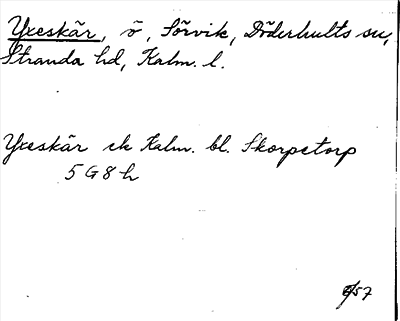 Yxeskär, ö, Sörvik, Döderhults sn,
Stranda hd, Kalm. l.
Yxeskär ek Kalm. bl. Skorpetorp
5 G 8 h
/57